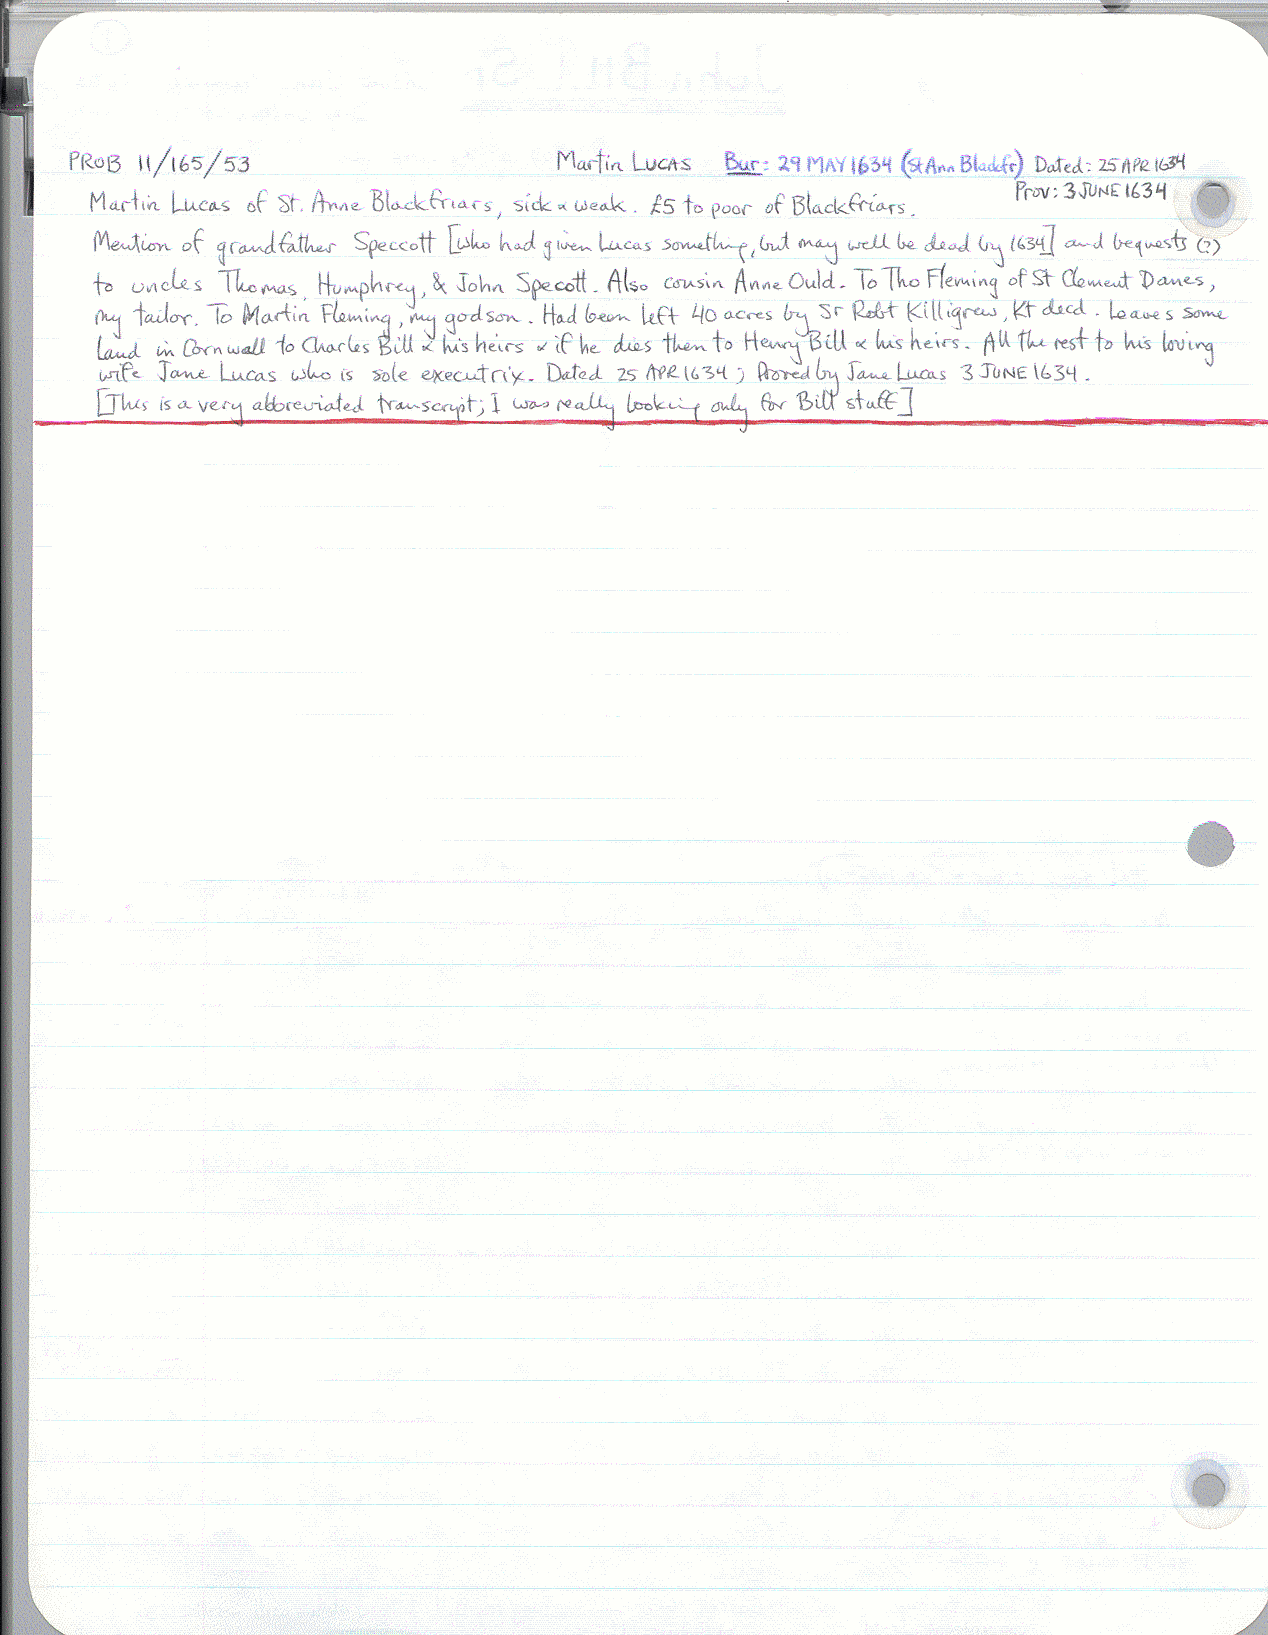 PROB 11/165/53 Martin LUCAS Bur: 29 MAY 1634 (St Ann Blackfr) Dated: 25 APR 1634
Prov: 3 JUNE 1634
Martin Lucas of St. Anne Blackfriars, sick & weak. £5 to poor of Blackfriars.
Mention of grandfather Speccott [who had given Lucas something, but may well be dead by 1634] and bequests (?)
to uncles Thomas, Humphrey, & John Specott. Also cousin Anne Ould. To Tho Fleming of St Clement Danes,
my tailor. To Martin Fleming, my godson. Had been left 40 acres by Sr Robt Killigrew, Kt decd. Leaves some
land in Cornwall to Charles Bill & his heirs & if he dies then to Henry Bill & his heirs. All the rest to his loving
wife Jane Lucas who is sole executrix. Dated 25 APR 1634; Proved by Jane Lucas 3 JUNE 1634.
[This is a very abbreviated transcript; I was really looking only for Bill stuff]